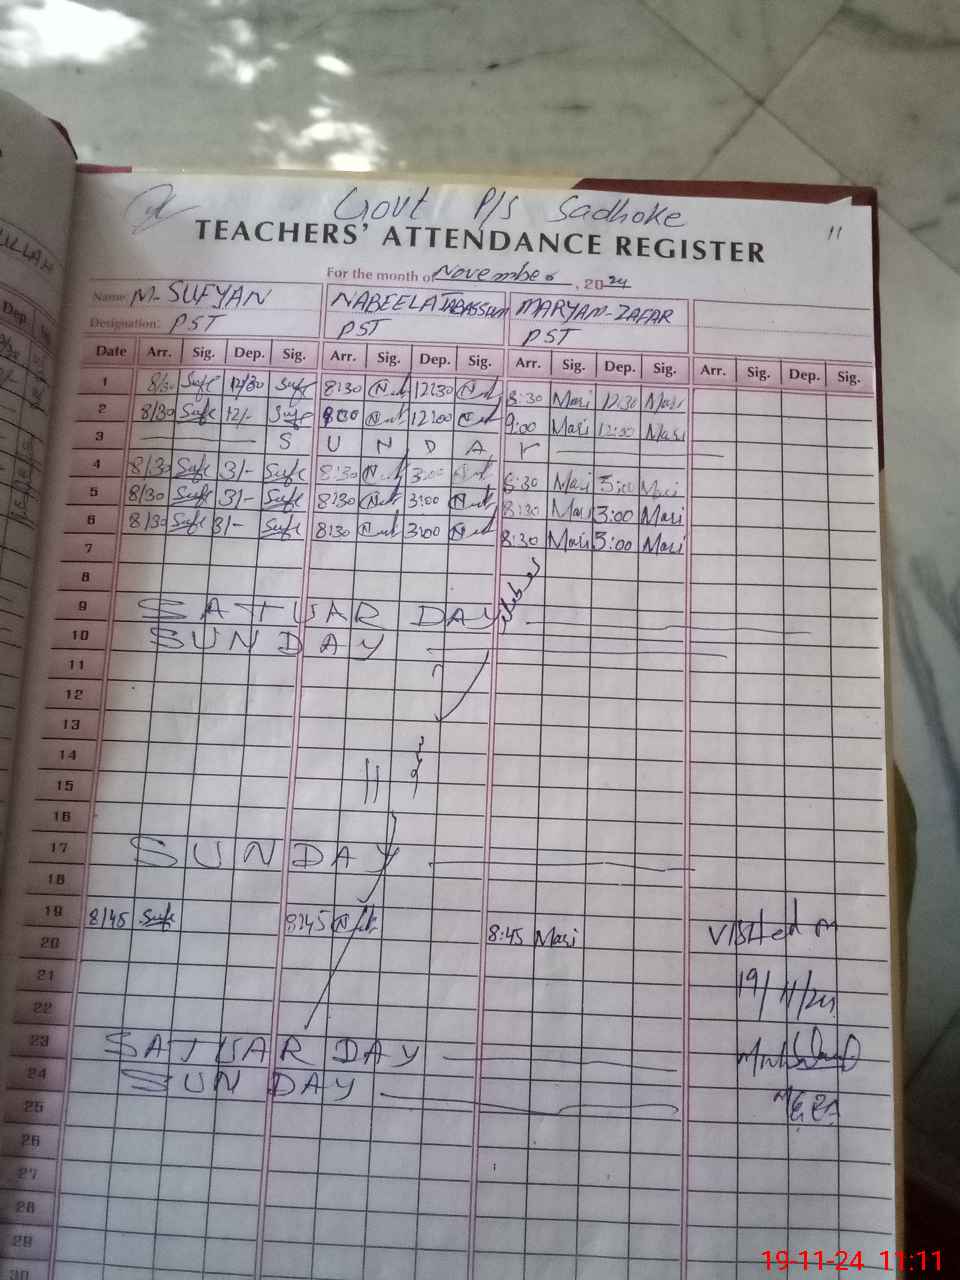 Govt P/S Sadhoke
11
TEACHERS' ATTENDANCE REGISTER
For the month of November, 2024
ULLAH
Name M-SUFYAN NABEELA TABASSUM MARYAM-ZAFAR
Designation: PST PST PST
Date Arr. Sig. Dep. Sig. Arr. Sig. Dep. Sig. Arr. Sig. Dep. Sig. Arr. Sig. Dep. Sig.
1 8/30 Sufe 12/30 Sufe 8:30 12:30 8:30 Mari 12:30 Mari
2 8/30 Sufe 12/- Sufe 8:30 12:00 9:00 Mari 12:30 Mari
3 S U N D A Y
4 8/30 Sufe 3/- Sufe 8:30 3:00 8:30 Mari 3:00 Mari
5 8/30 Sufe 3/- Sufe 8:30 3:00 8:30 Mari 3:00 Mari
6 8/30 Sufe 3/- Sufe 8:30 3:00 8:30 Mari 3:00 Mari
7
8
9 SATUARDAY
10 SUNDAY
11
12
13
14
15
16
17 SUNDAY
18
19 8/45 Sufe 8:45 8:45 Mari VISIted on
20
21 19/11/24
22
23 SATUARDAY
24 SUNDAY
25
26
27
28
29
30
19-11-24 11:11